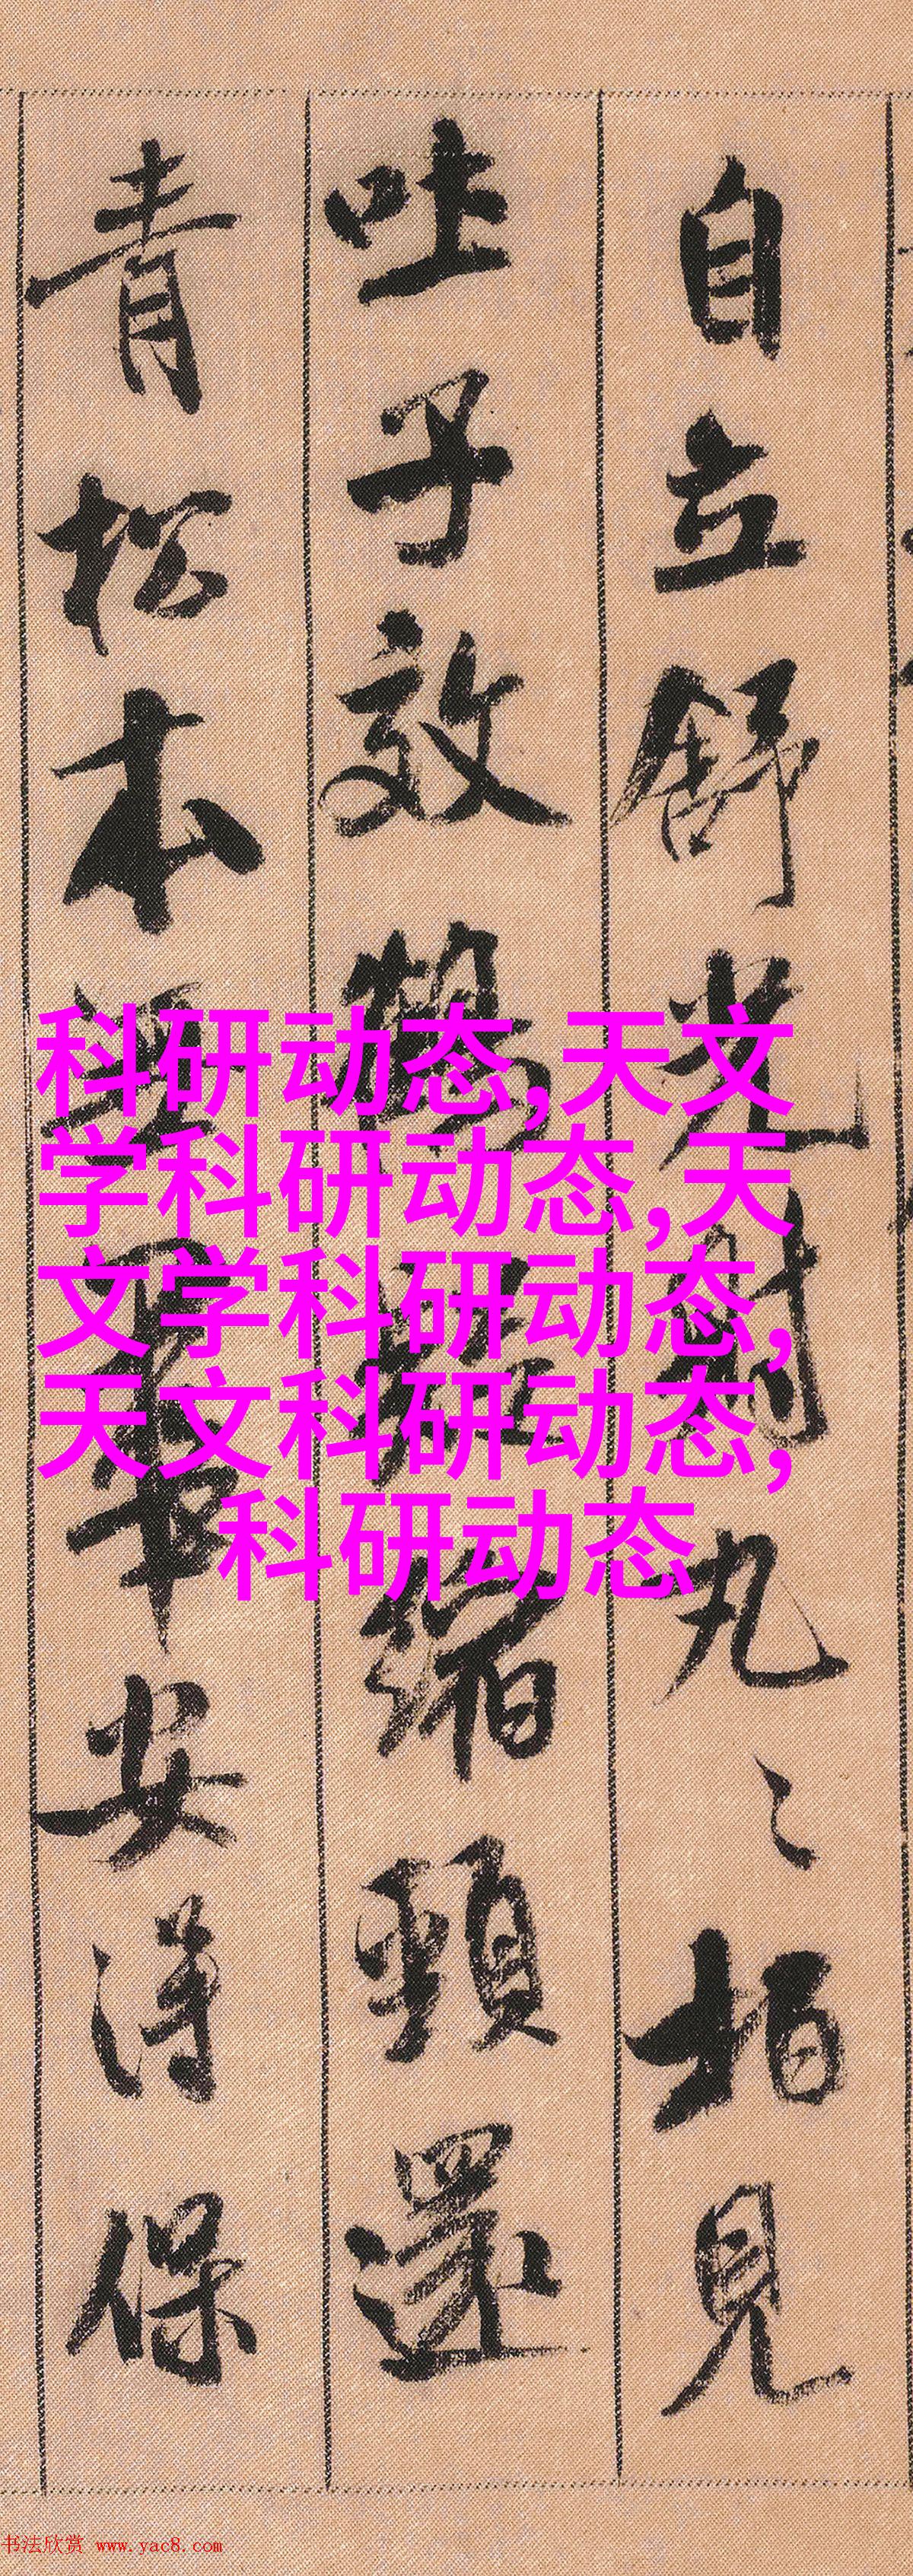 自立舒光射丸〻柏見
吐子效鶴疑縮頸還
青松本無華安得保
科研动态,天文
学科研动态,天
文学科研动态,
天文科研动态,
科研动态
书法欣赏 www.yac8.com